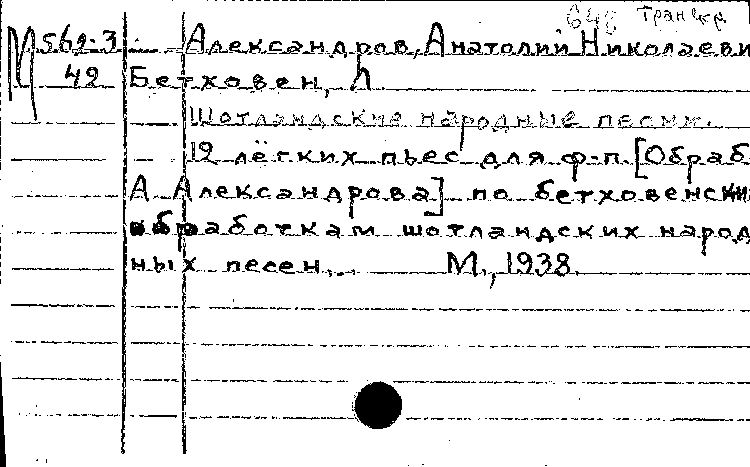 648 Транскр.
М 562-3 Александров, Анатолий Николаеви
42 Бетховен, Л.
Шотландские народные песни.
12 лёгких пьес для ф-п. [Обраб
А Александрова] по бетховенским
обработкам шотландских народ
ных песен. М., 1938.